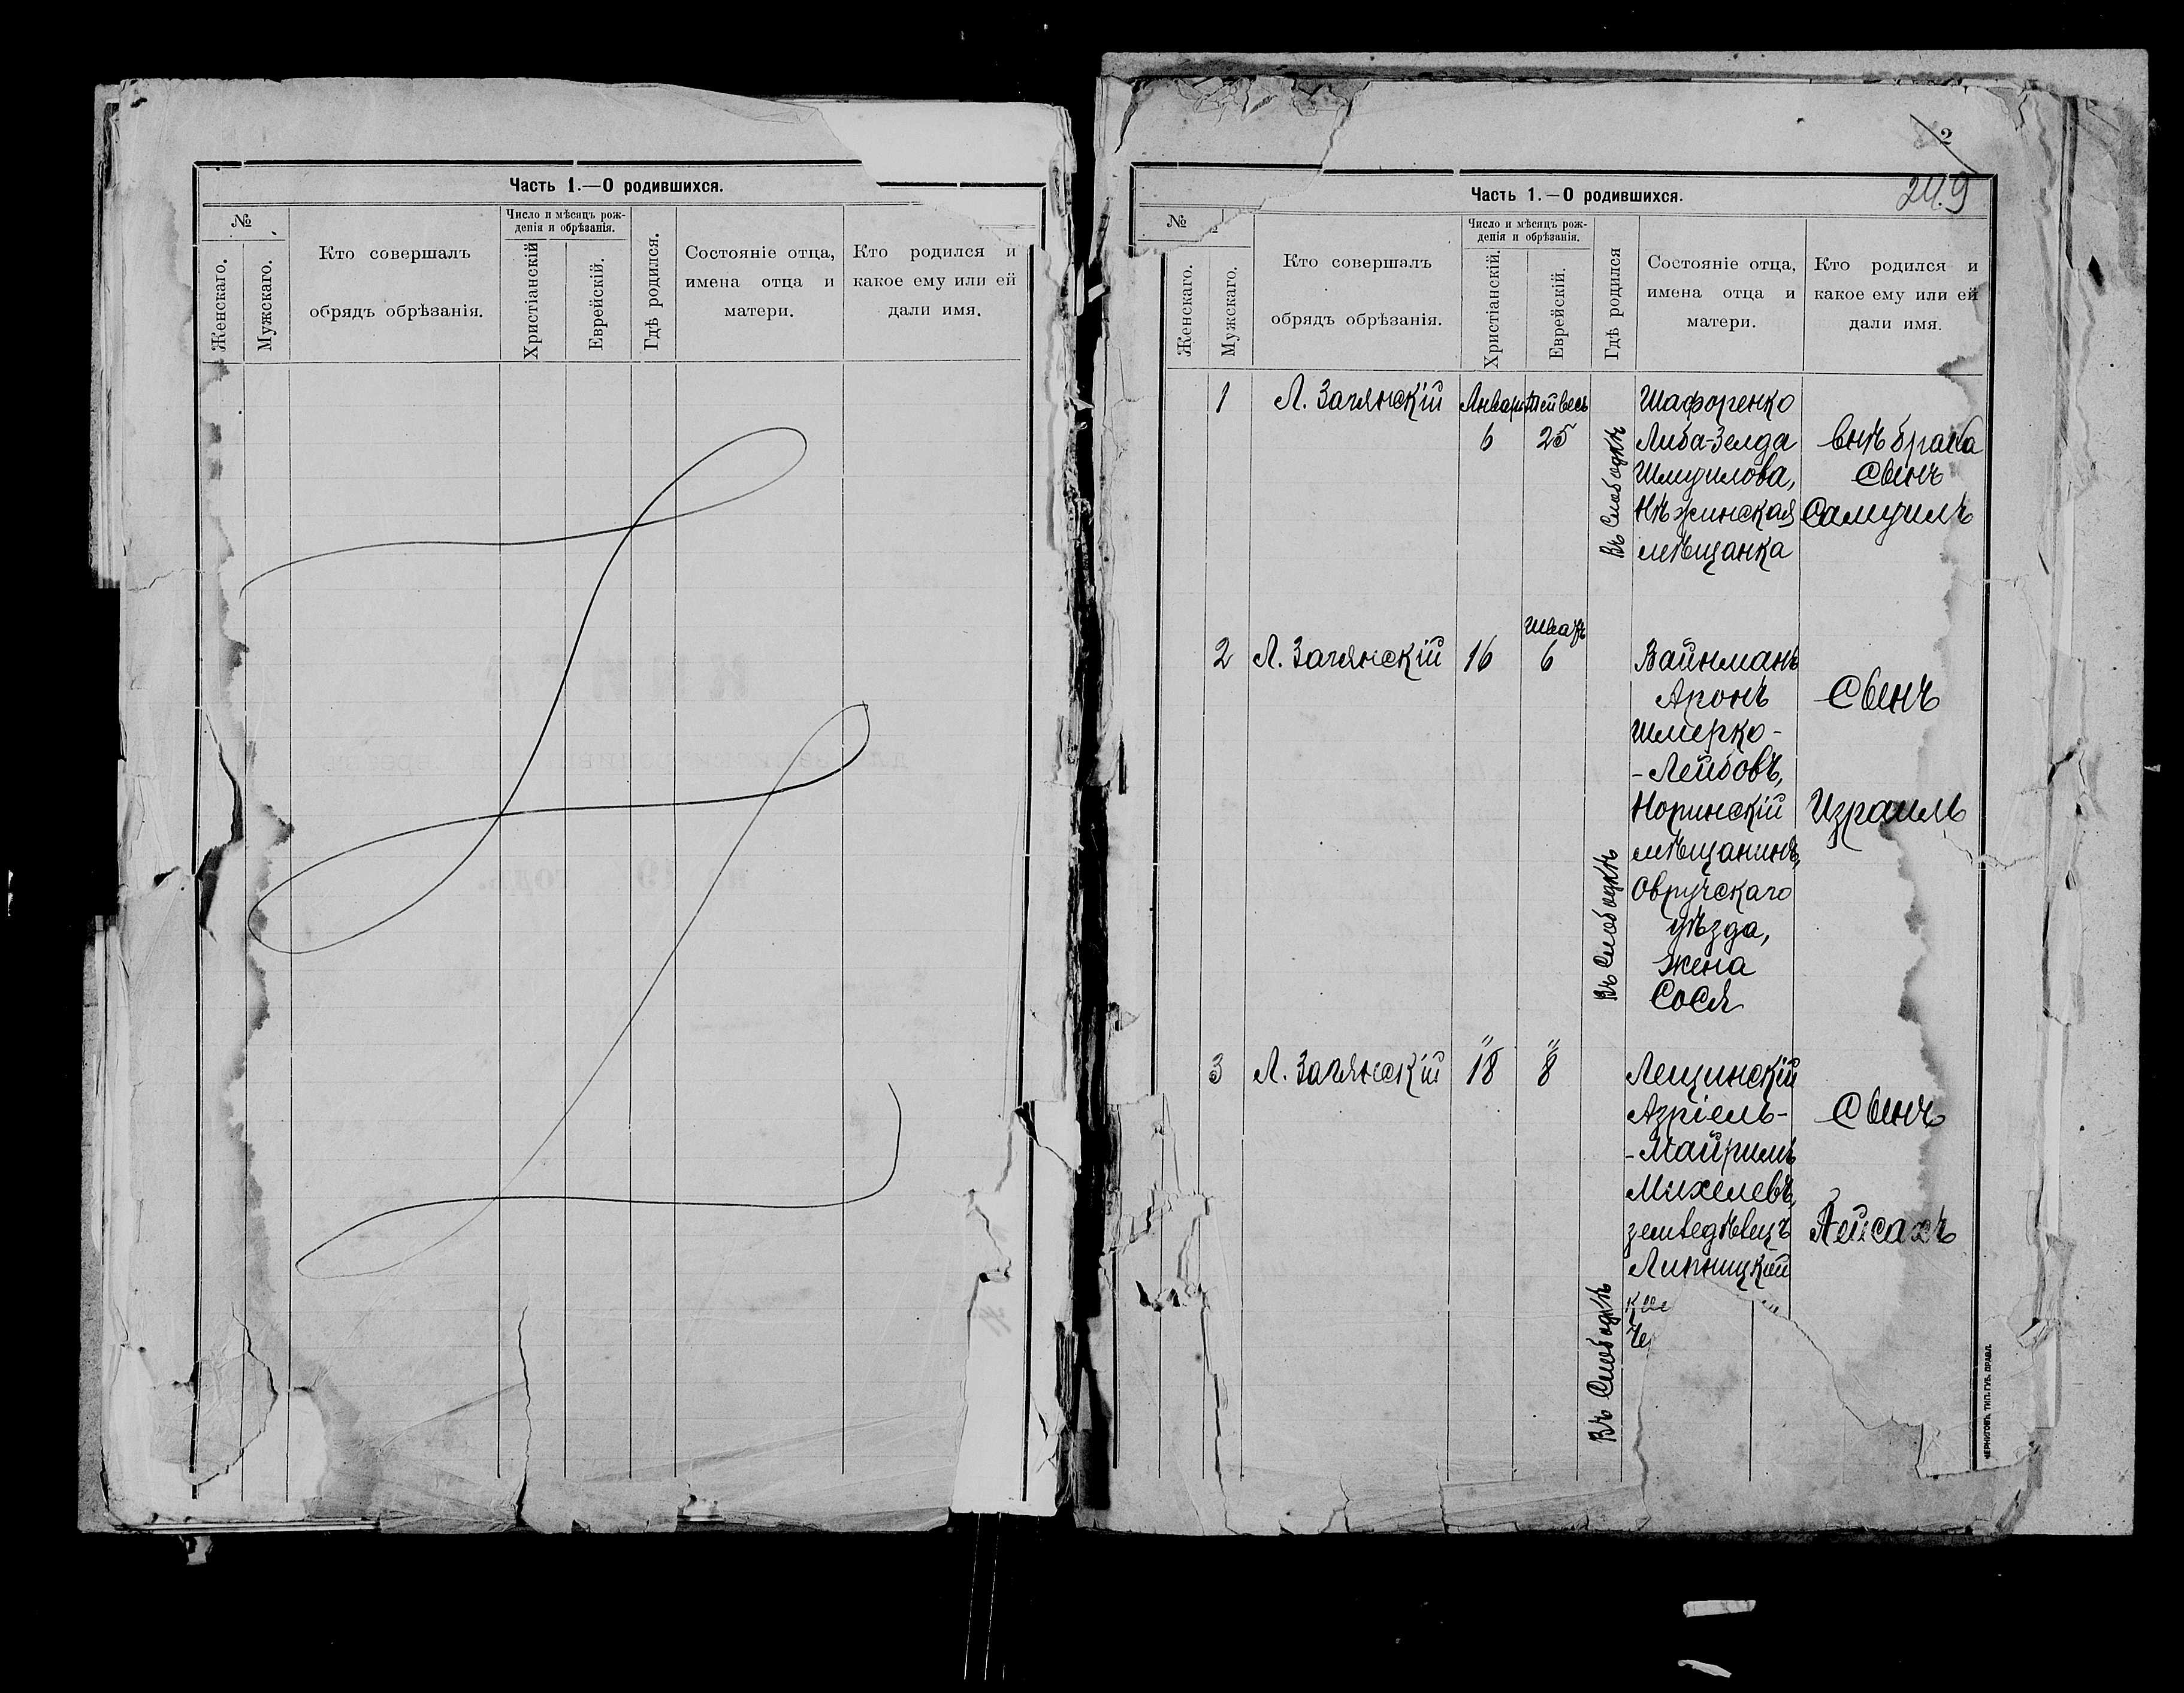 Часть 1.—О родившихся.
№
Женскаго.
Мужскаго.
Кто совершалъ
обрядъ обрѣзанія.
Число и мѣсяцъ рож-
денія и обрѣзанія.
Христіанскій
Еврейскій.
Гдѣ родился.
Состояніе отца,
имена отца и
матери.
Кто родился и
какое ему или ей
дали имя.
2
249
Часть 1.—О родившихся.
№
Женскаго.
Мужскаго.
Кто совершалъ
обрядъ обрѣзанія.
Число и мѣсяцъ рож-
денія и обрѣзанія.
Христіанскій.
Еврейскій.
Гдѣ родился
Состояніе отца,
имена отца и
матери.
Кто родился и
какое ему или ей
дали имя.
1
Л. Загянскій
Январь
Тейвесъ
6
25
Въ Слободкѣ
Шафоренко
Либа-Зелда
Шмуилова,
Нѣжинская
мѣщанка
внѣ брака
сынъ
Самуилъ
2
Л. Загянскій
16
Шватъ
6
Въ Слободкѣ
Вайнманъ
Аронъ
Шмерко-
-Лейбовъ,
Норинскій
мѣщанинъ,
Овручскаго
уѣзда,
жена
Сося
Сынъ
Израиль
3
Л. Загянскій
" 18
" 8
Въ Слободкѣ
Лещинскій
Азріель-
-Майримъ
Михелевъ,
Липницкій
Сынъ
Пейсахъ
ЧЕРНИГОВЪ, ТИП. ГУБ. ПРАВЛ.